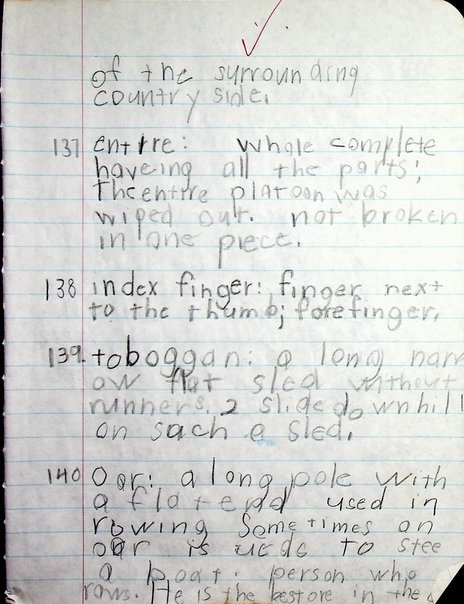 of the surrounding
country side.
137 entire: whole complete
haveing all the parts;
the entire platoon was
wiped out. not broken
in one piece.
138 index finger: finger next
to the thumb; forefinger.
139. toboggan: a long narr
ow flat sled without
runners. 2 slide downhill
on such a sled.
140 Oar: a long pole with
a flat end used in
rowing Sometimes an
oar is uede to stee
a boat. person who
rows. He is the bestore in the